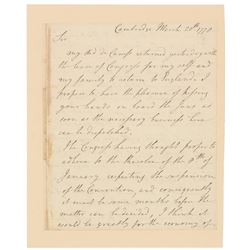 Cambridge March 20th 1778
Sir
my Aid de Camp returned yesterday with
the leave of Congress for my self and
my family to return to England. I
propose to have the pleasure of kissing
your hands on board the Juno as
soon as the necessary business here
can be dispatched.
The Congress having thought proper to
adhere to the Resolve of the 8th of
January respecting the suspension
of the Convention, and consequently
it must be some months before the
matter can be decided, I think it
would be greatly for the economy of